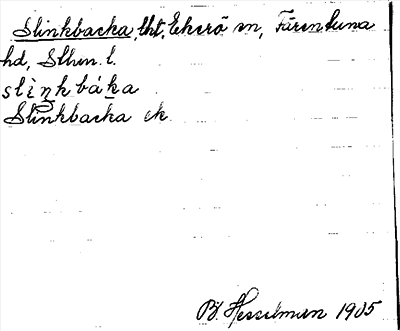 Slinkbacka, tht, Ekerö sn, Färentuna
hd, Sthm. l.
slìŋkbáka
Slinkbacka ek
Hesselman 1905